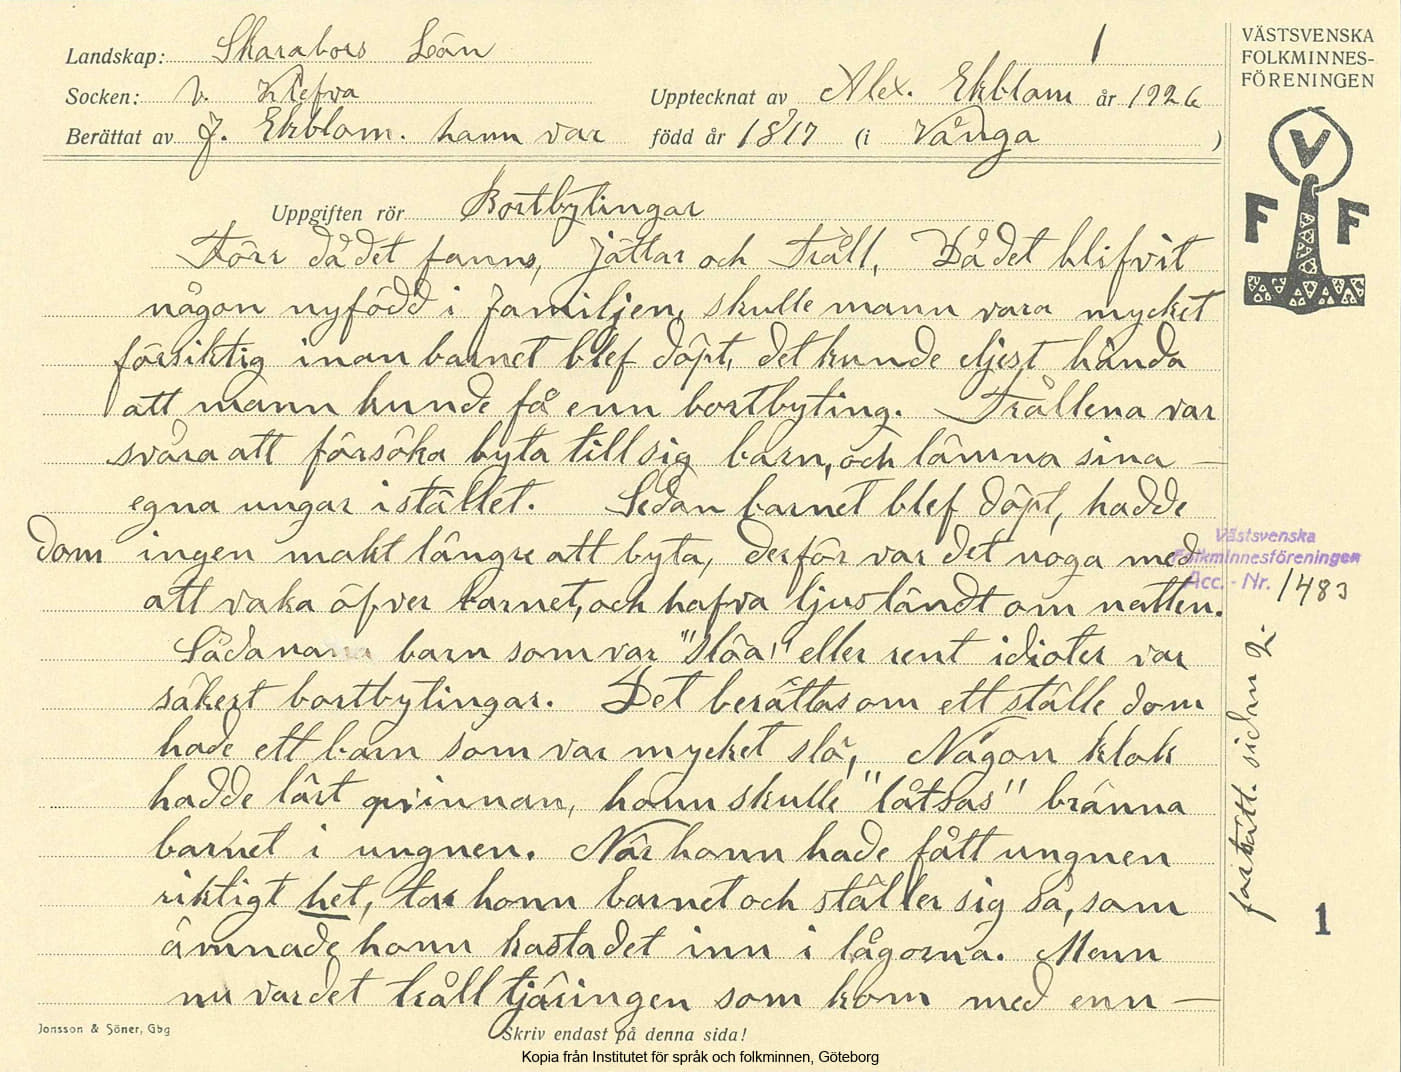 Landskap: Skarabors Län
1
Socken: v. Klefva
Upptecknat av Alex. Ekblom år 1926
Berättat av J. Ekblom. hann var född år 1817 (i Vånga)
VÄSTSVENSKA
FOLKMINNES-
FÖRENINGEN
V
F F
Uppgiften rör Bortbytingar
Förr då det fanns, jättar och Tråll, Då det blifvit
någon nyfödd i familjen, skulle mann vara mycket
försiktig inan barnet blef döpt, det kunde eljest hända
att mann kunde få enn bortbyting. Trållena var
svåra att försöka byta till sig barn, och lämna sina —
egna ungar i stället. Sedan barnet blef döpt, hadde
dom ingen makt längre att byta, derför var det noga med
att vaka öfver barnet, och hafva ljus tändt om natten.
Sådana barn som var "slöa" eller rent idioter var
säkert bortbytingar. Det berättas om ett ställe dom
hade ett barn som var mycket slö, Någon klok
hadde lärt qvinnan, honn skulle "låtsas" bränna
barnet i ungnen. När honn hade fått ungnen
riktigt het, tar honn barnet och ställer sig så, som
ämnade honn kasta det inn i lågorna. Menn
nu var det tråll tjäringen som kom med enn —
Västsvenska
Folkminnesföreningen
Acc. - Nr. 1483
fortsätt. sidan 2.
1
Jonsson & Söner, Gbg
Skriv endast på denna sida!
Kopia från Institutet för språk och folkminnen, Göteborg